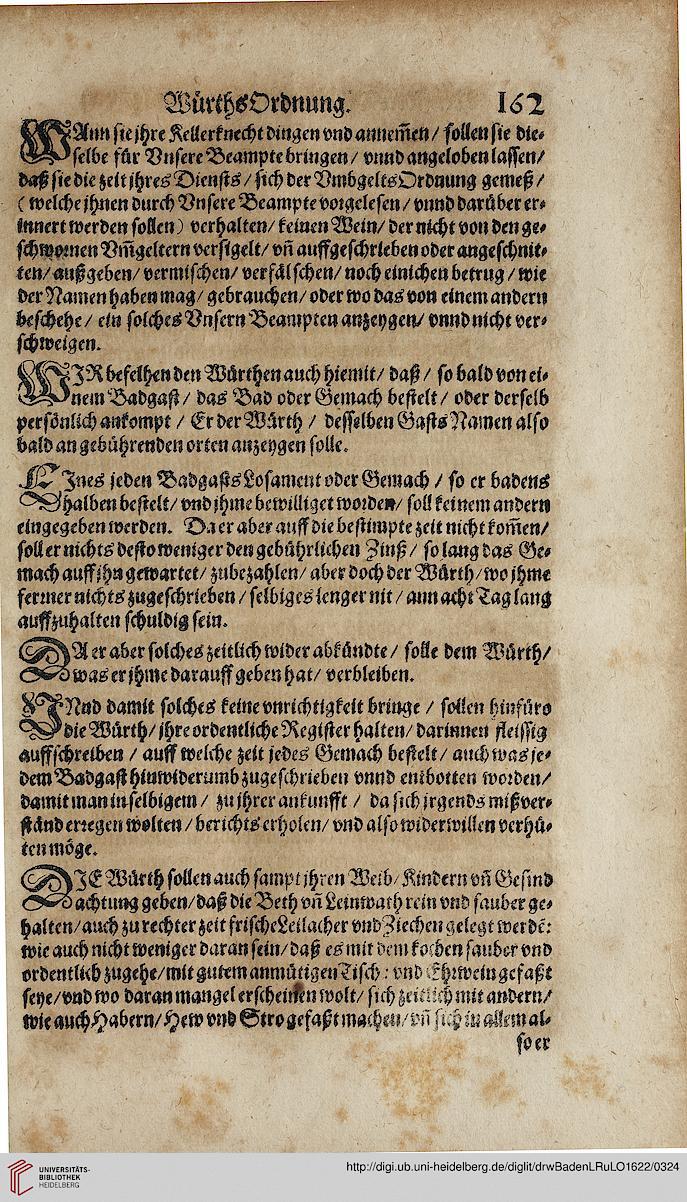 WürthsOrdnung. 162
WAnn sie jhre Kellerknecht dingen vnd annem̃en / sollen sie die⸗
selbe für Vnsere Beampte bringen / vnnd angeloben lassen /
daß sie die zeit jhres Diensts / sich der VmbgeltsOrdnung gemeß /
( welche jhnen durch Vnsere Beampte vorgelesen / vnnd darüber er⸗
innert werden sollen ) verhalten / keinen Wein / der nicht von den ge⸗
schwornen Vm̃geltern versigelt / vñ auffgeschrieben oder angeschnit⸗
ten / außgeben / vermischen / verfälschen / noch einichen betrug / wie
der Namen haben mag / gebrauchen / oder wo das von einem andern
beschehe / ein solches Vnsern Beampten anzeygen / vnnd nicht ver⸗
schweigen.
WJR befelhen den Würthen auch hiemit / daß / so bald von ei⸗
nem Badgast / das Bad oder Gemach bestelt / oder derselb
persönlich ankompt / Er der Würth / desselben Gasts Namen also
bald an gebührenden orten anzeygen solle.
EJnes jeden Badgasts Losament oder Gemach / so er badens
halben bestelt / vnd jhme bewilliget worden / soll keinem andern
eingegeben werden. Da er aber auff die bestimpte zeit nicht kom̃en /
soll er nichts desto weniger den gebührlichen Zinß / so lang das Ge⸗
mach auff jhn gewartet / zubezahlen / aber doch der Würth / wo jhme
ferrner nichts zugeschrieben / selbiges lenger nit / ann acht Tag lang
auffzuhalten schuldig sein.
DA er aber solches zeitlich wider abkündte / solle dem Würth /
was er jhme darauff geben hat / verbleiben.
VNnd damit solches keine vnrichtigkeit bringe / sollen hinfüro
die Würth / jhre ordentliche Register halten / darinnen fleissig
auffschreiben / auff welche zeit jedes Gemach bestelt / auch was je⸗
dem Badgast hinwiderumb zugeschrieben vnnd entbotten worden /
damit man in selbigem / zu jhrer ankunfft / da sich jrgends mißver⸗
ständ erregen wolten / berichts erholen / vnd also widerwillen verhü⸗
ten möge.
DJE Würth sollen auch sampt jhren Weib / Kindern vñ Gesind
achtung geben / daß die Beth vñ Leinwath rein vnd sauber ge⸗
halten / auch zu rechter zeit frische Leilacher vnd Ziechen gelegt werdē:
wie auch nicht weniger daran sein / daß es mit dem kochen sauber vnd
ordentlich zugehe / mit gutem anmütigen Tisch: vnd Ehrwein gefaßt
seye / vnd wo daran mangel erscheinen wolt / sich zeitlich mit andern /
wie auch Habern / Hew vnd Stro gefaßt machen / vñ sich in allem al⸗
so er
UNIVERSITÄTS-
BIBLIOTHEK
HEIDELBERG
http://digi.ub.uni-heidelberg.de/diglit/drwBadenLRuLO1622/0324